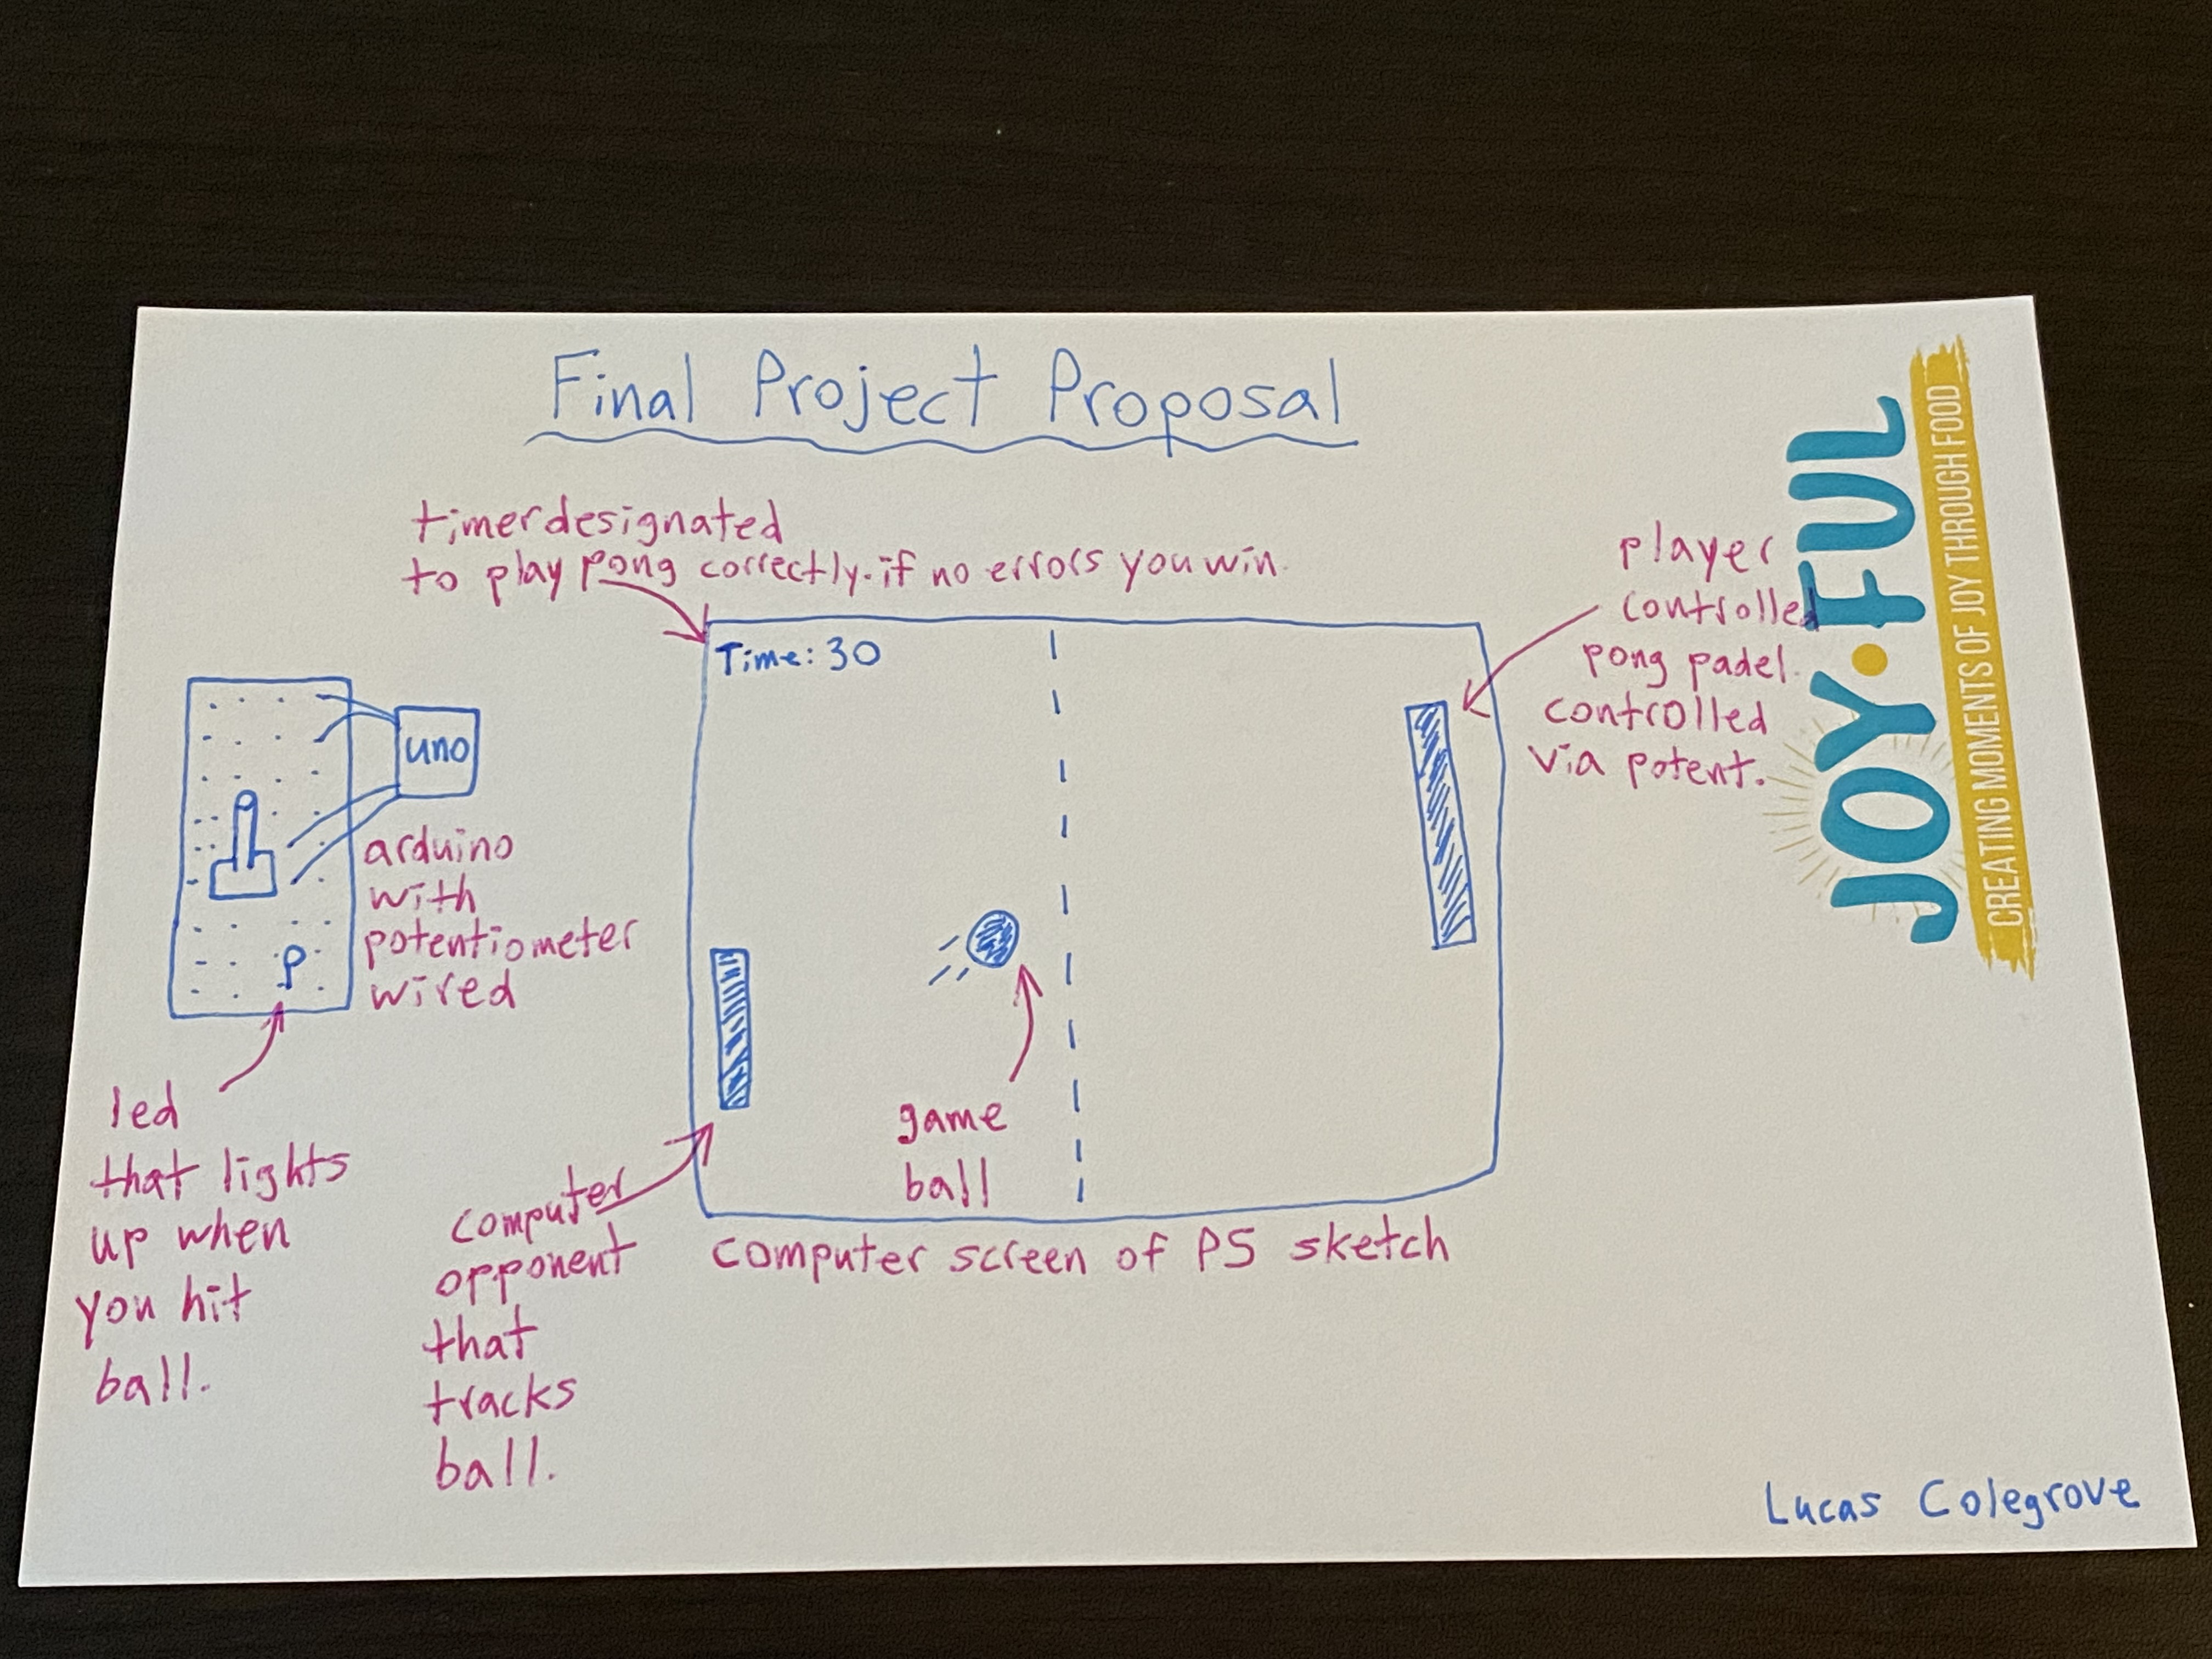 Final Project Proposal
timer designated
to play pong correctly. if no errors you win.
uno
arduino
with
potentiometer
wired
led
that lights
up when
you hit
ball.
Computer
opponent
that
tracks
ball.
Time: 30
game
ball
Computer screen of P5 sketch
player
controlled
pong padel.
controlled
via potent.
JOY•FUL
CREATING MOMENTS OF JOY THROUGH FOOD
Lucas Colegrove